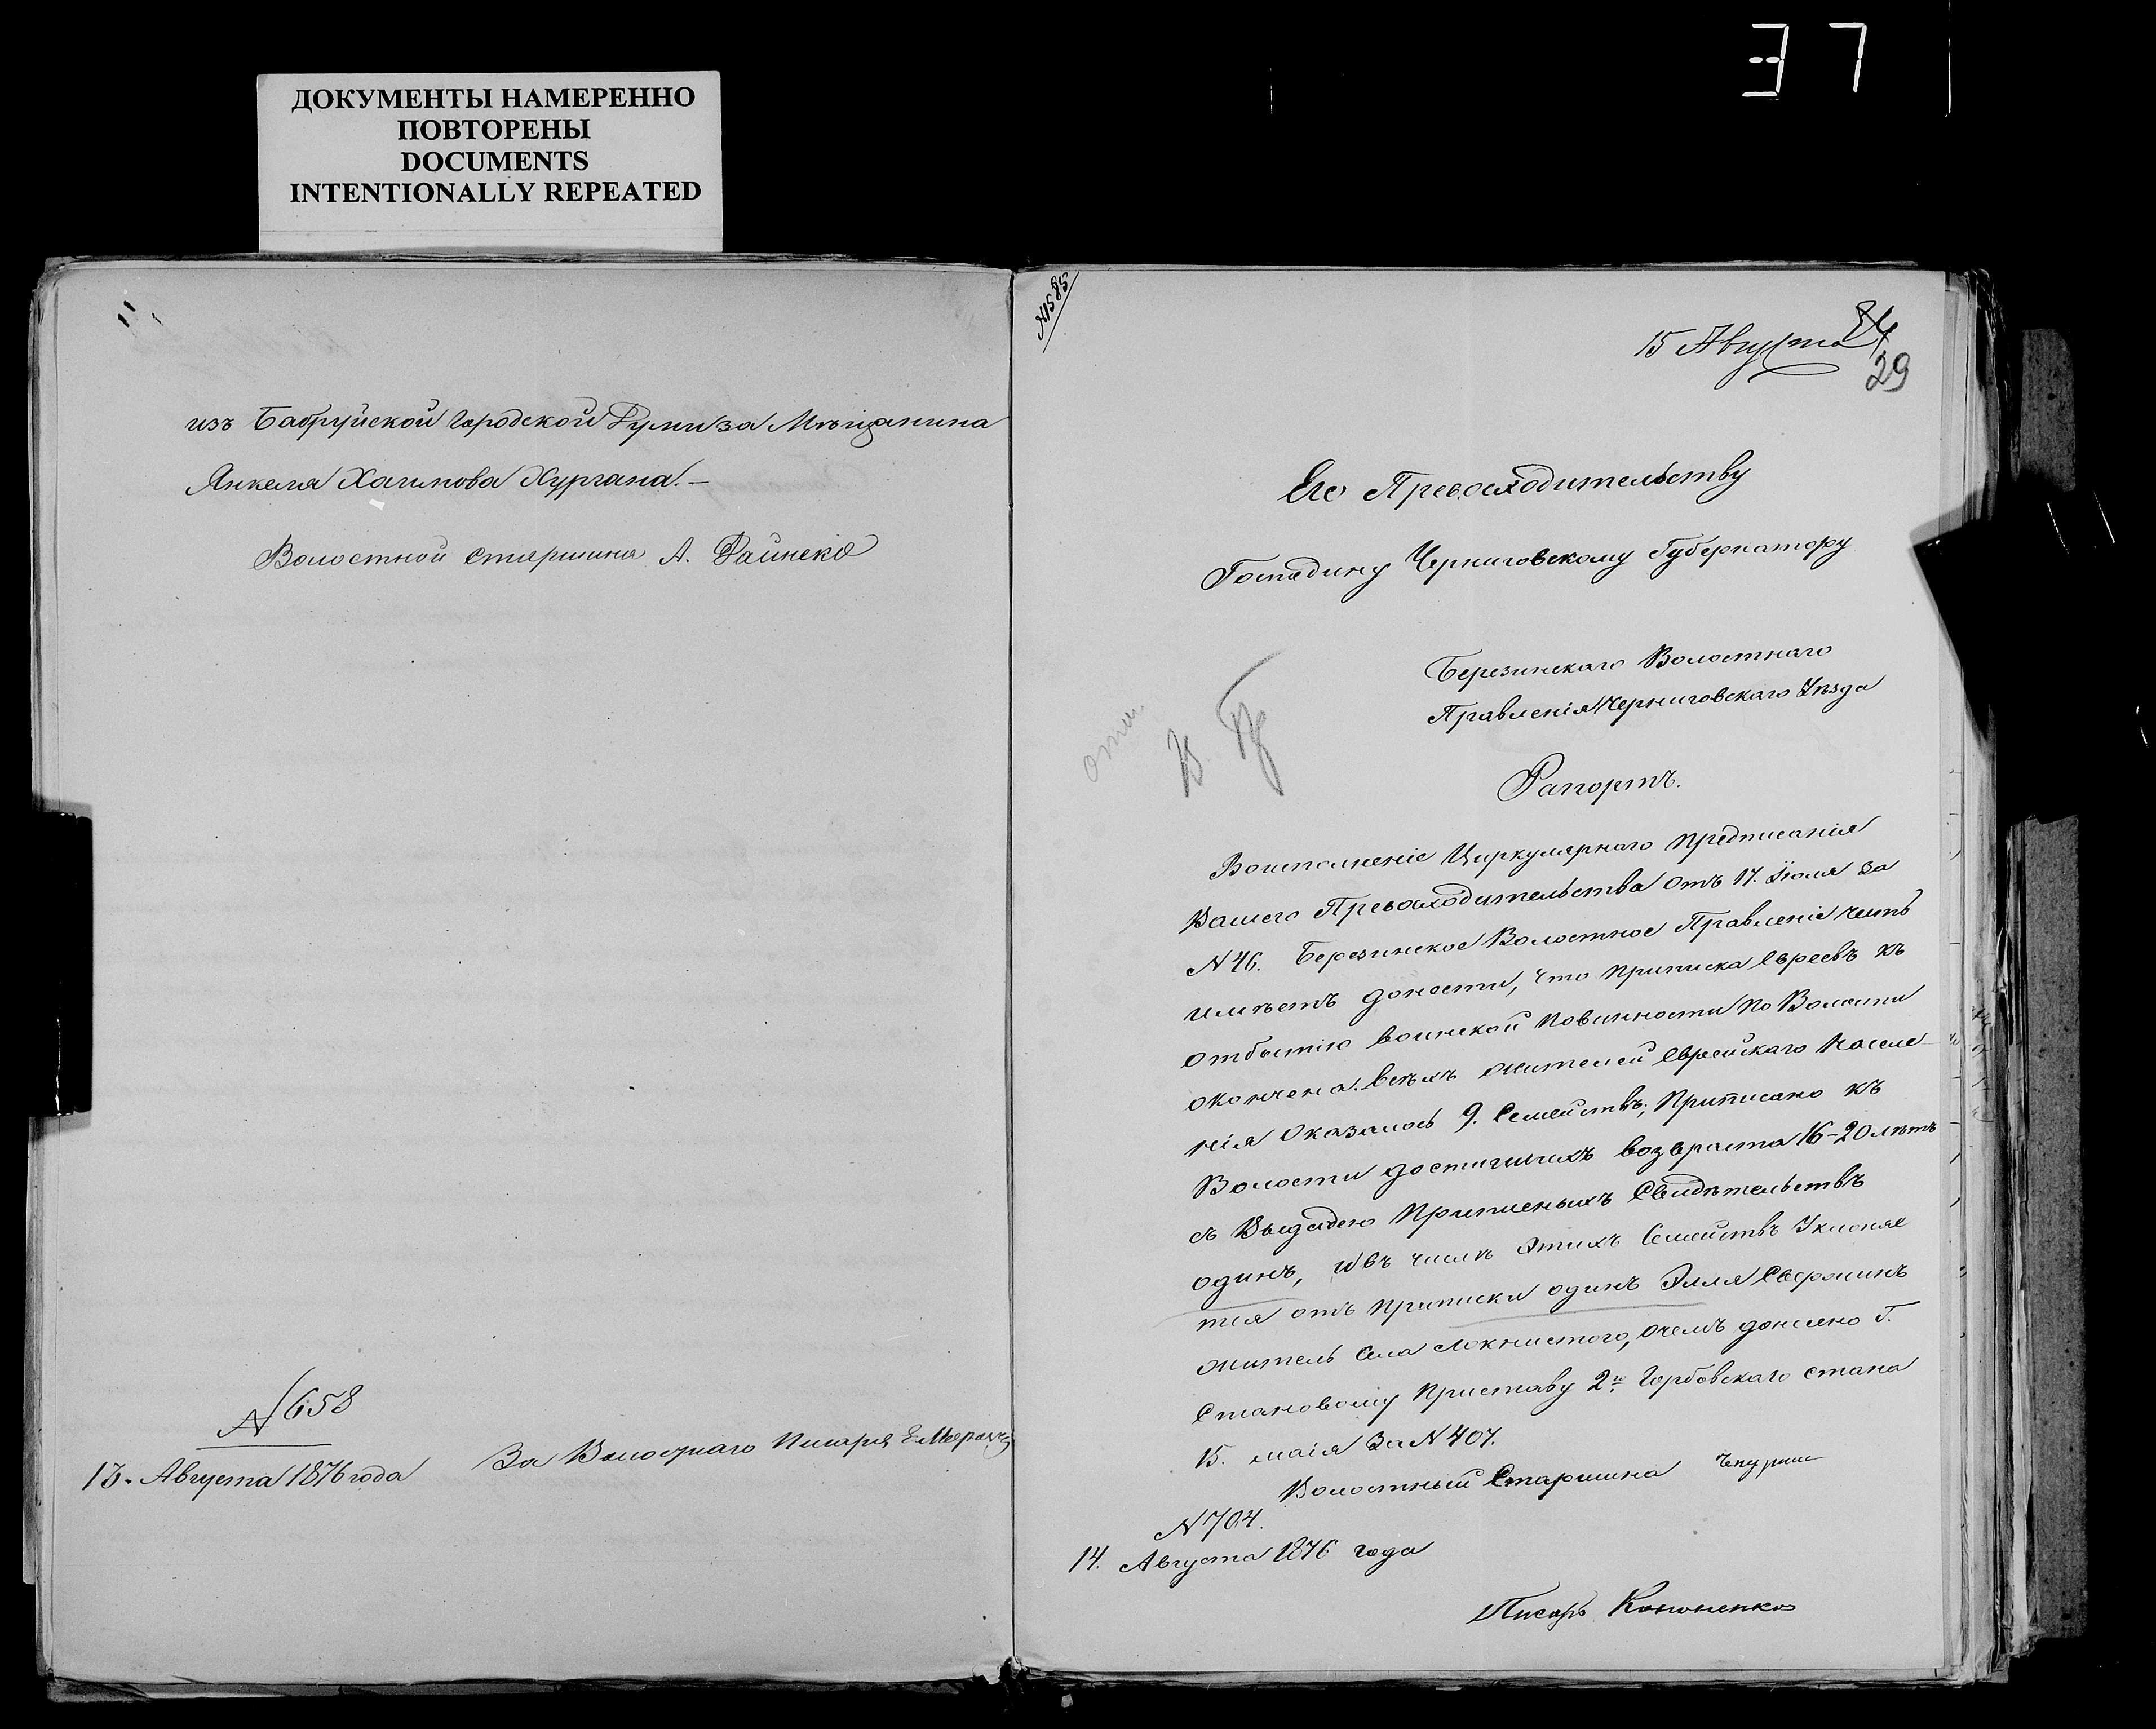 37
ДОКУМЕНТЫ НАМЕРЕННО
ПОВТОРЕНЫ
DOCUMENTS
INTENTIONALLY REPEATED
изъ Бабруйской Городской Думы за Мѣщанина
Янкеля Хаимова Кургана.—
Волостной старшина А.
N 658
13. Августа 1876 года
За Волостнаго Писаря
N 1585
15 Августа
29
Его Превосходительству
Господину Черниговскому Губернатору
Березинскаго Волостнаго
Правленія Черниговскаго Уѣзда
Рапортъ.
Воисполненіе Циркулярнаго Предписанія
Вашего Превосходительства отъ 17. Іюля за
N 46. Березинское Волостное Правленіе честь
имѣетъ донести, что приписка Евреевъ къ
отбытію воинской повинности по Волости
окончена. всѣхъ жителей Еврейскаго Населе-
нія Оказалось 9. Семействъ; Приписано къ
Волости достигшихъ возвраста 16-20 лѣтъ
съ Выдачею Приписныхъ Свидѣтельствъ
одинъ, ивъ числѣ этихъ Семействъ Уклоняе
тся отъ приписки одинъ Элля
житель Села Локнистого, очемъ донесено Г.
Становому Приставу 2го Горбовскаго стана
15. маія За N 407.
Волостный Старшина
N 704.
14. Августа 1876 года
Писарь Кононенко